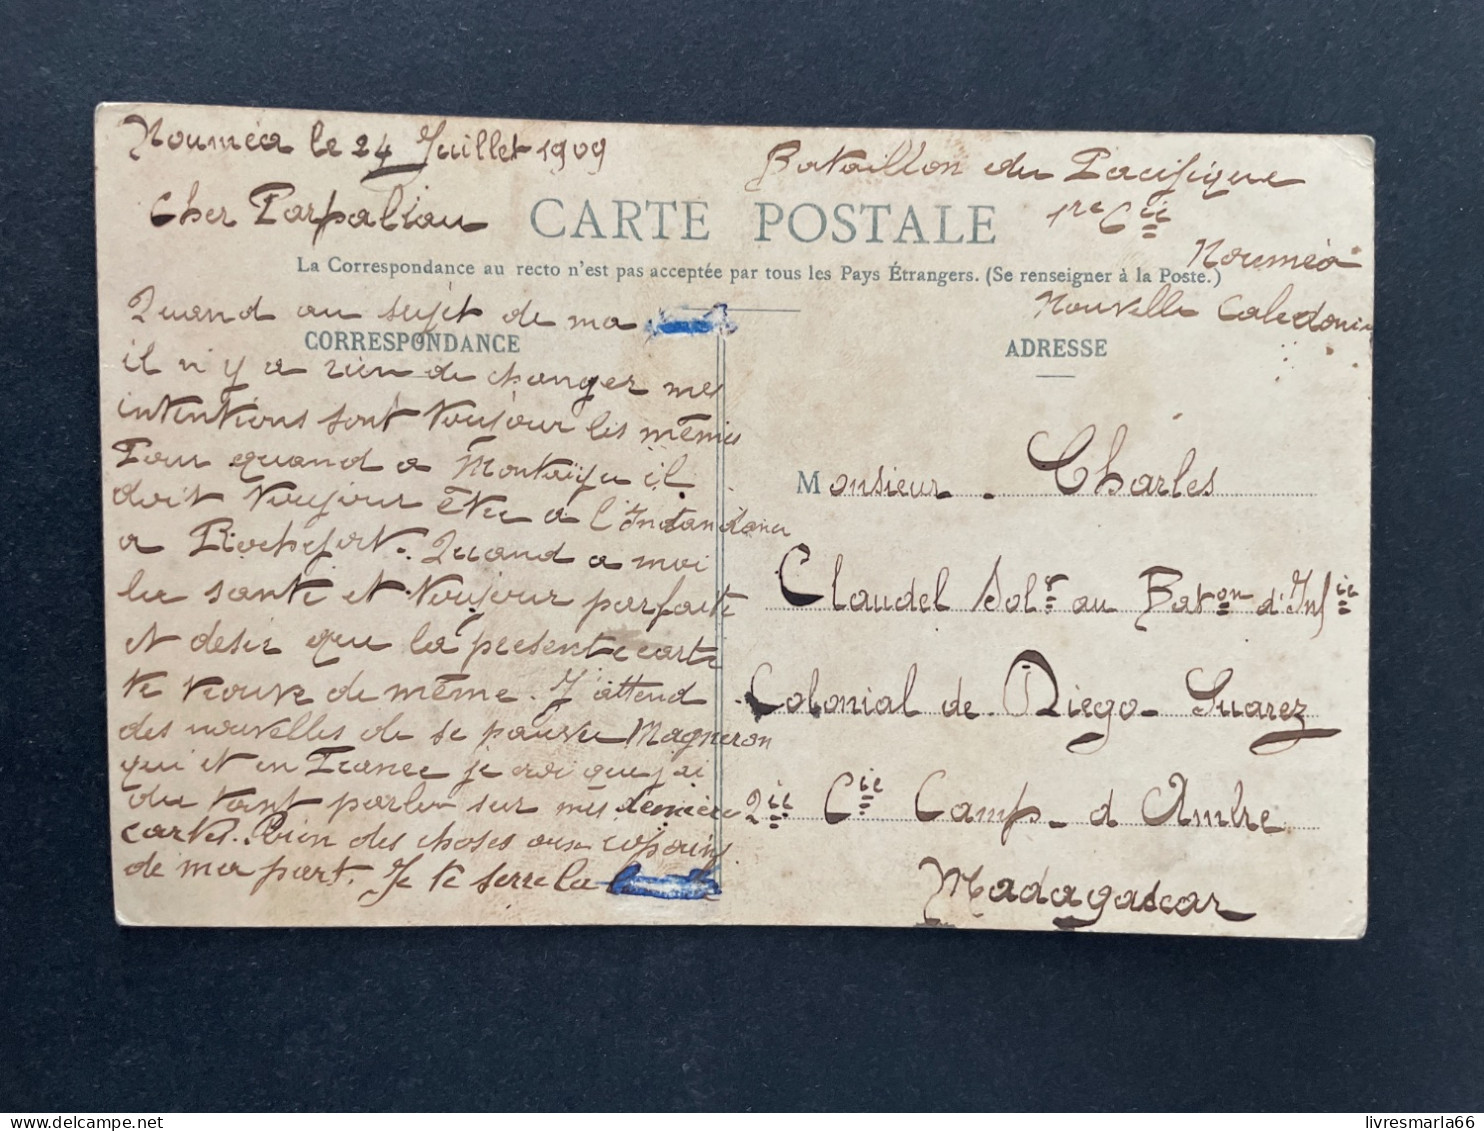 Nouméa le 24 Juillet 1909
Cher Parpaliau
Quand au sujet de ma
il n'y a rien de changer mes
intentions sont toujour les mêmes
Pour quand a il
doit toujour être a
a Rochefort. Quand a moi
la santé et toujour parfaite
et desir que la présente carte
te trouve de même. J'attend
des nouvelles de se pauvre Magneron
qui et en France je croi que j'ai
du tant parler sur mes derniere
cartes. Bien des choses aux copains
de ma part. Je te serre la
Bataillon du Pacifique
1re Cie
Nouméa
Nouvelle Caledonie
CARTE POSTALE
La Correspondance au recto n'est pas acceptée par tous les Pays Étrangers. (Se renseigner à la Poste.)
CORRESPONDANCE
ADRESSE
Monsieur - Charles
Claudel Solr au Baton d'Infie
Colonial de Diego-Suarez
2ie Cie Camp-d'Ambre
Madagascar
livresmarla66